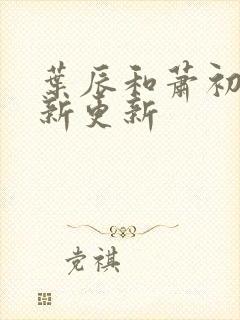 葉辰和蕭初
新更新
党祺